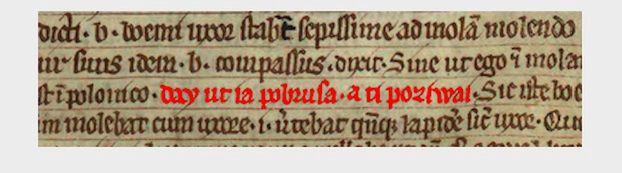 dicti · b · boemi uxor stabat sepissime ad molā molendo
ur suus idem · b · compassus · dixit · Sine ut ego ī molar
st ī polonico · day ut ia pobrusa · a ti poziwai · Sic iste boe
m molebat cum uxore · i · v̄tebat qn̄q lapidē sic̄ uxor · Quo